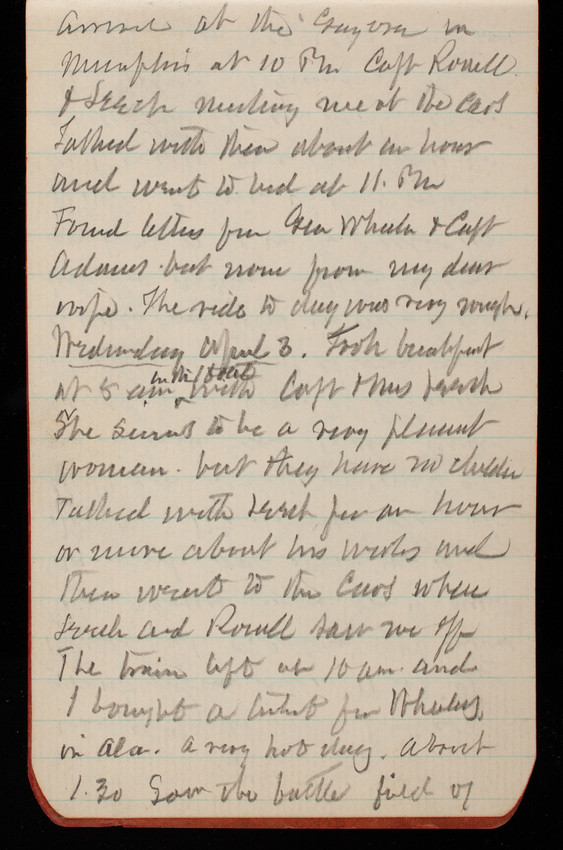 Arrived at the Gayoso in
Memphis at 10 Pm Capt Rowell
& Leech meeting me at the cars
Talked with them about an hour
and went to bed at 11. Pm
Found letters from Gen Wheeler & Capt
Adams but none from my dear
wife. The ride to day was very rough.
Wednesday April 3. Took breakfast
at 8 am in the Hotel with Capt & Mrs Leech
She seems to be a very pleasant
woman. but they have no children
Talked with Leech for an hour
or more about his works and
then went to the Cars where
Leech and Rowell saw me off
The train left at 10 am. and
I bought a ticket for Wheeler,
in Ala. a very hot day. About
1.30 Saw the battle field of